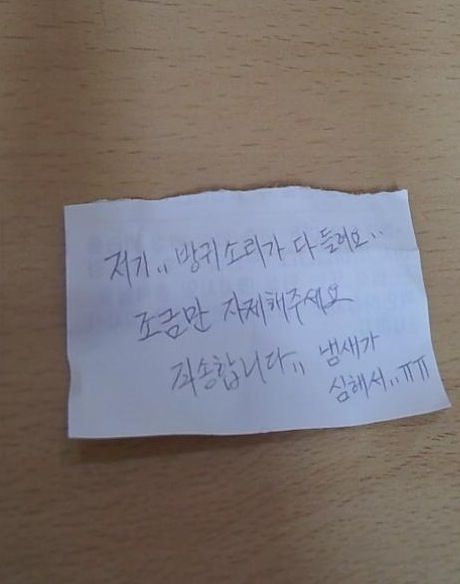 저기,, 방귀소리가 다 들려요..
조금만 자제해주세요
죄송합니다,, 냄새가
심해서,,ㅠㅠ